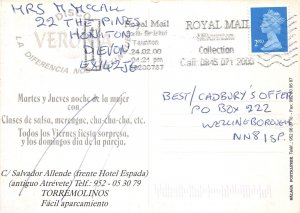 MRS M. MCCALL
22 THE PINES
HONITON
DEVON
DISCO
VERO
LA DIFERENCIA NO
Royal Mail
Taunton
24.02.00
04:21 pm
ROYAL MAIL
Millennium
Collection
Call 0845 071 2000
2ND
BEST/CADBURY'S OFFER
PO BOX 222
WELLINGBOROUGH
NN8 1SP.
Martes y Jueves noche de la mujer
con
Clases de salsa, merengue, cha-cha-cha, etc.
Todos los Viernes fiesta sorpresa,
y los domingos día de la pareja.
C/ Salvador Allende (frente Hotel Espada)
(antiguo Atrévete) Tel.: 952 - 05 30 79
TORREMOLINOS
Fácil aparcamiento